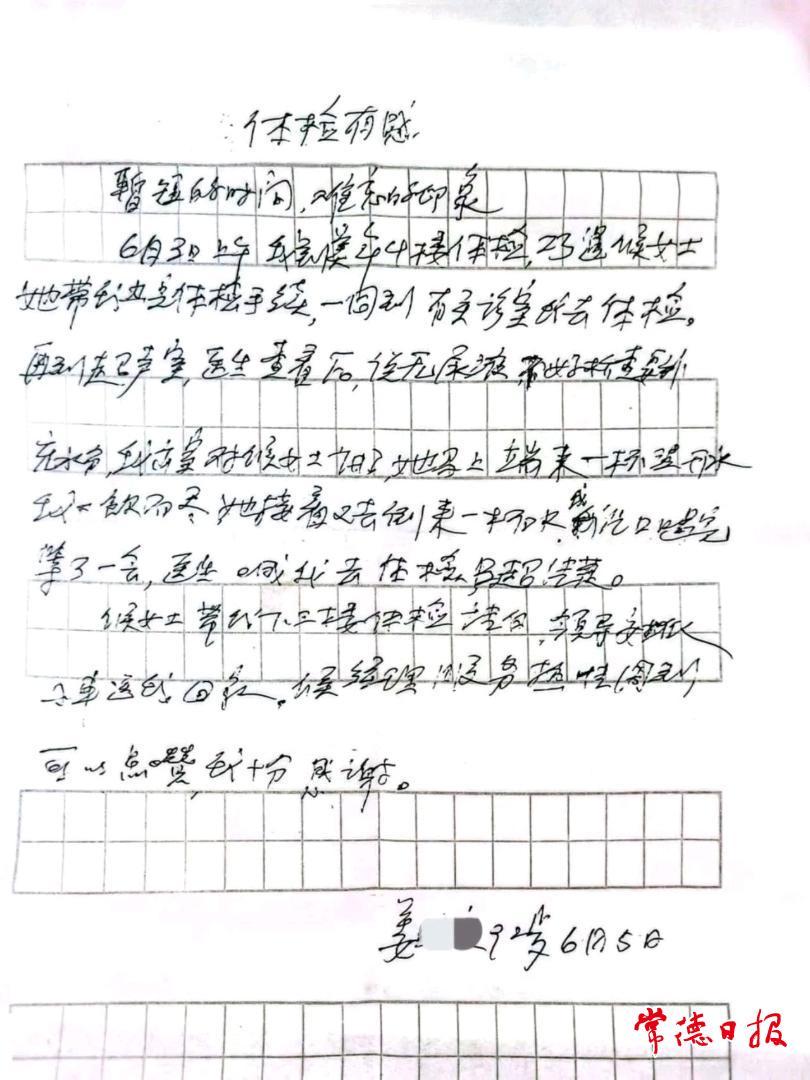 体检有感
暂短的时间,难忘的印象
6月3日上午我到 4楼体检,巧遇候女士
她带我办完体检手续,一同到有关诊室我去体检。
再到B声室,医生查看后,说无尿液,
充水分,我 对候女士 她马上端来一杯温开水
我一饮而尽她接着又去倒来一杯水,我 口喝完
等了一会,医生喊我去体检, 超 。
候女士带我下三楼体检 ,领导安排
车送我回家。候经理服务热情周到
可以点赞,我十分感谢。
姜 92岁6月5日
常德日报